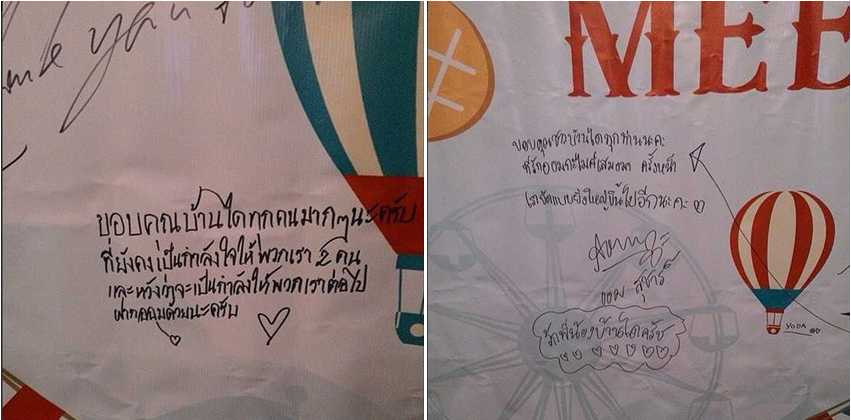 ขอบคุณบ้านไดทุกคนมากๆนะครับ
ที่ยังคงเป็นกำลังใจให้พวกเรา 2 คน
และหวังว่าจะเป็นกำลังให้พวกเราต่อไป
ฝากออมด้วยนะครับ
MEE
ขอบคุณชาวบ้านไดทุกท่านนะคะ
ที่รักออมกะไมค์เสมอมา ครั้งหน้า
เราจัดแบบยิ่งใหญ่ขึ้นไปอีกนะคะ
ออม สุชาร์
รักพี่น้องบ้านไดครัช
YODA